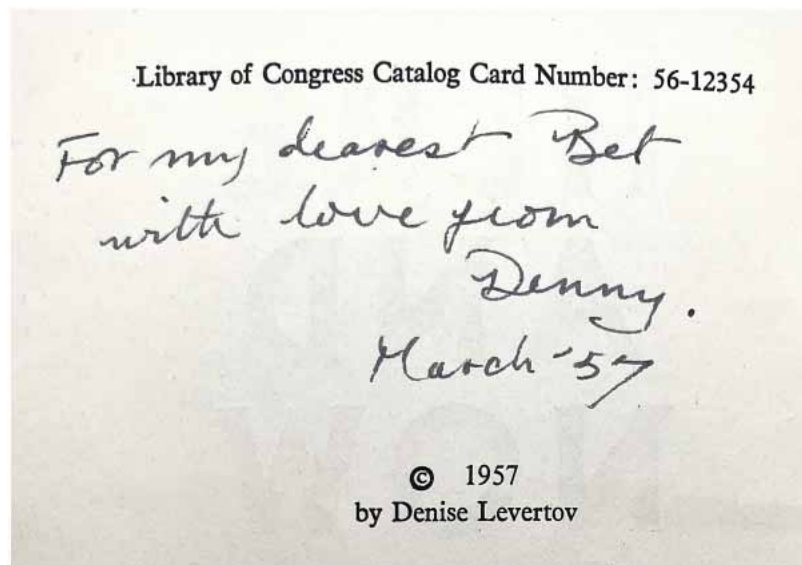 Library of Congress Catalog Card Number: 56-12354
For my dearest Bet
with love from
Denny.
March '57
© 1957
by Denise Levertov